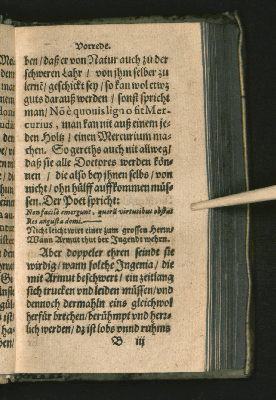 Vorrede.
ben / daß er von Natur auch zu der
schweren Lahr / von jhm selber zu
lernē / geschickt sey / so kan wol etwz
guts darauß werden / sonst spricht
man / Nō è quouis ligno fit Mer-
curius, man kan nit auß einem je-
den Holtz / einen Mercurium ma-
chen. So geraths auch nit allweg /
daß sie alle Doctores werden kön-
nen / die also bey jhnen selbs / von
nicht / ohn hülff auffkommen müs-
sen. Der Poet spricht:
Non facilè emergunt, quorū virtutibus obstat
Res angusta domi.
Nicht leicht wirt einer zum grossen Herrn /
Wann Armut thut der Jugendt wehren.
Aber doppeler ehren seindt sie
wirdig / wann solche Ingenia / die
mit Armut beschwert / ein zeitlang
sich trucken vnd leiden müssen / vnd
dennoch dermahln eins gleichwol
herfür brechen / berühmpt vnd herr-
lich werden / dz ist lobs vnnd rühms
B iij